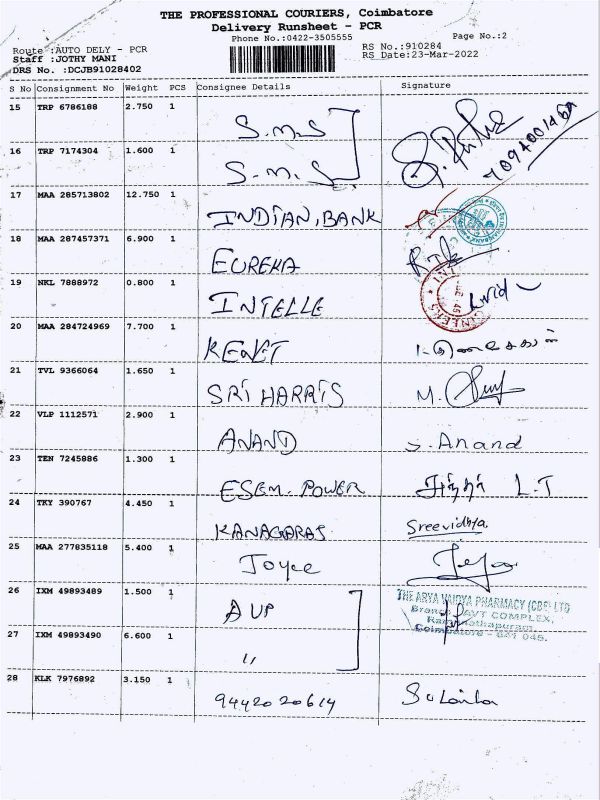 THE PROFESSIONAL COURIERS, Coimbatore
Delivery Runsheet - PCR
Phone No.:0422-3505555
Page No.:2
Route :AUTO DELY - PCR
RS No.:910284
Staff :JOTHY MANI
RS Date:23-Mar-2022
DRS No. :DCJB91028402
S No Consignment No Weight PCS Consignee Details Signature
15 TRP 6786188 2.750 1
S.M.S
16 TRP 7174304 1.600 1
S.M.S
17 MAA 285713802 12.750 1
INDIAN, BANK
18 MAA 287457371 6.900 1
EUREKA
19 NKL 7888972 0.800 1
INTELLE
20 MAA 284724969 7.700 1
21 TVL 9366064 1.650 1
SRI HARRIS M.
22 VLP 1112571 2.900 1
ANAND S. Anand
23 TEN 7245886 1.300 1
ESEM. POWER L.T
24 TKY 390767 4.450 1
KANAGARAS Sreevidhya.
25 MAA 277835118 5.400 1
Joyce
26 IXM 49893489 1.500 1
AVP
THE ARYA VAIDYA PHARMACY (CBE) LTD
AVT COMPLEX,
Ramanathapuram,
Coimbatore - 641 045.
27 IXM 49893490 6.600 1
"
28 KLK 7976892 3.150 1
9442020614